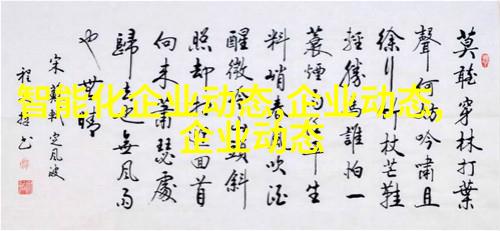 莫聽穿林打葉
聲何妨吟嘯且
徐行竹杖芒鞋
輕勝馬誰怕一
蓑煙雨任平生
料峭春風吹酒
醒微冷山頭斜
照却相迎回首
向来蕭瑟處
歸去也無風雨
也無晴
宋蘇軾定風波
智能化企业动态,企业动态,
企业动态